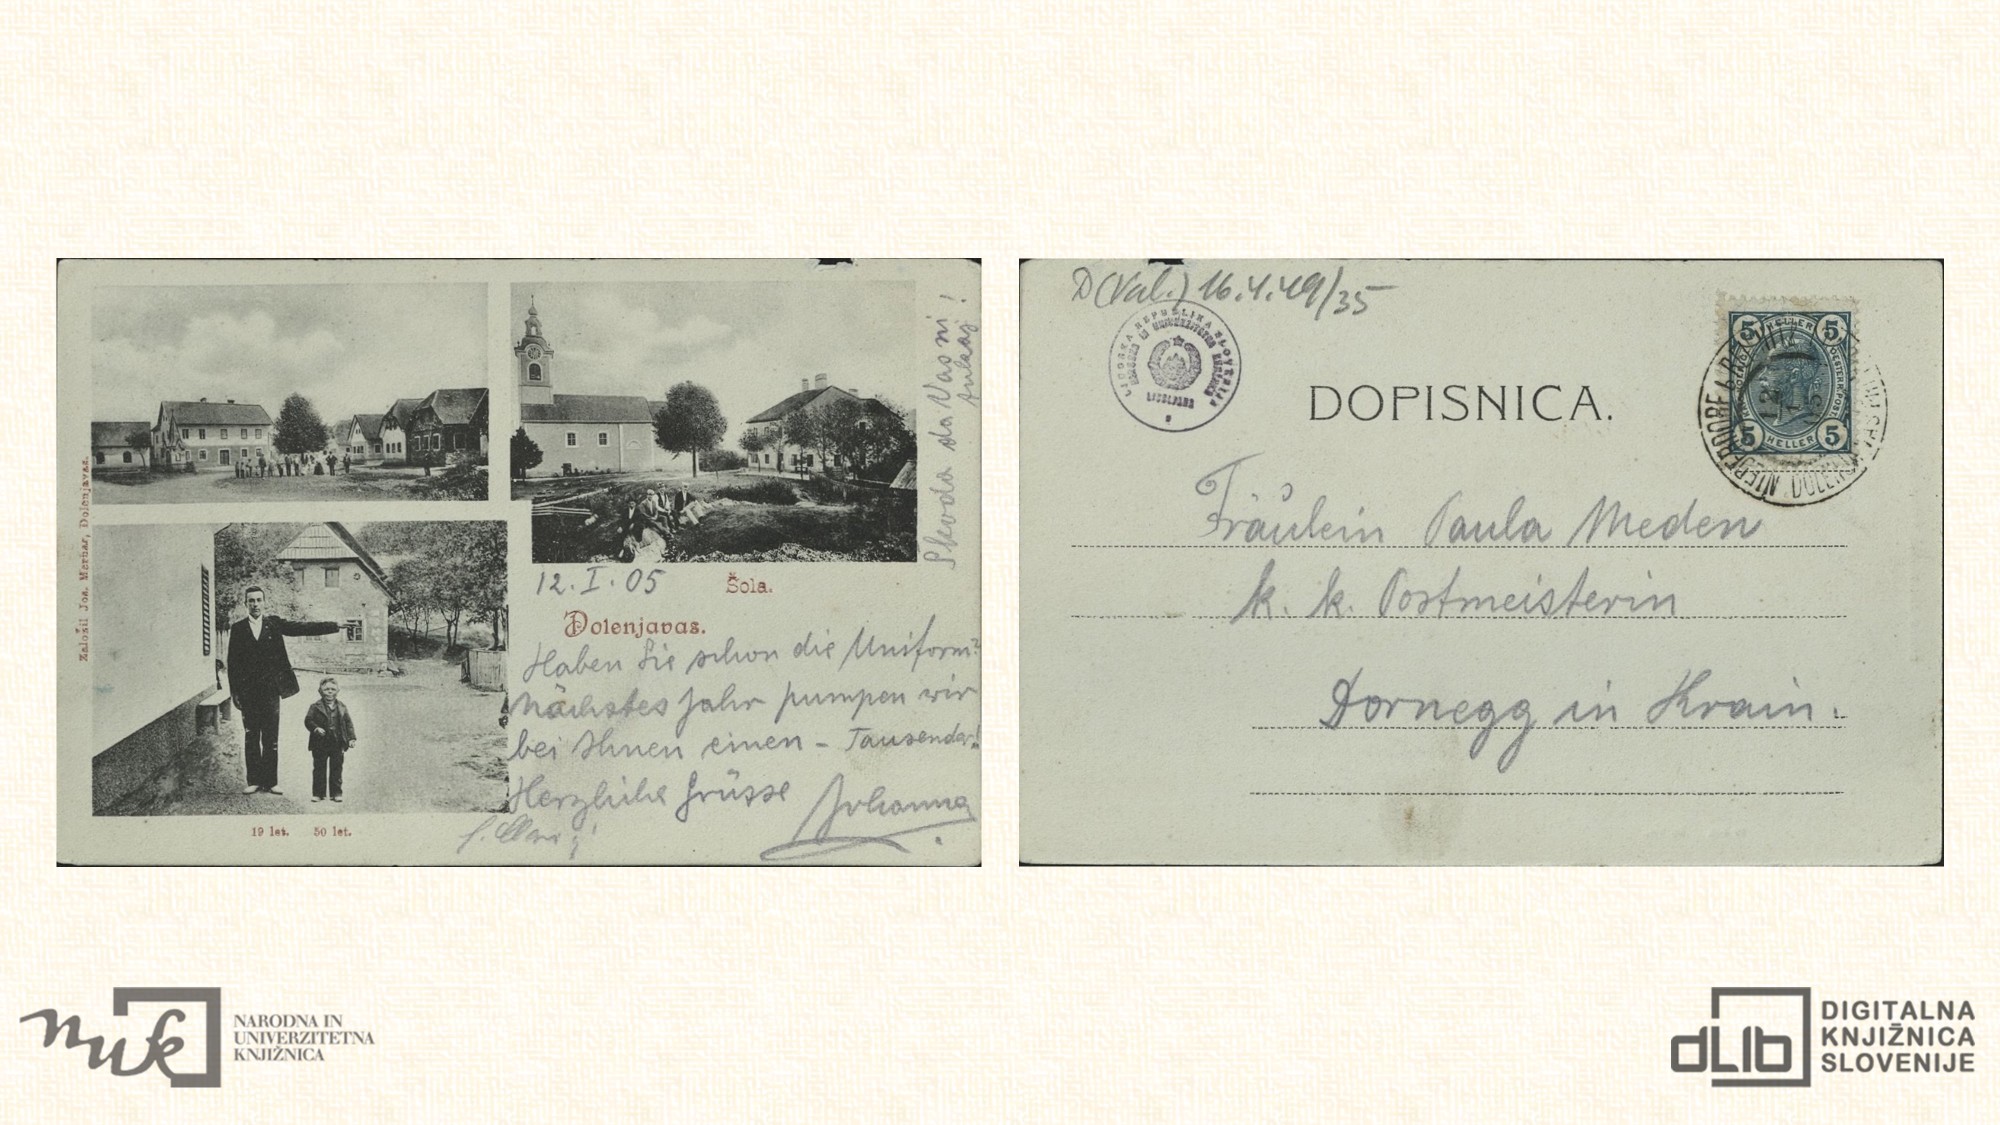 Založil Jos. Merhar, Dolenjavas.
12. I. 05
Šola.
Dolenjavas.
Haben Sie schon die Uniform?
Nächstes Jahr pumpen wir
bei Ihnen einen - Tausender!
Herzliche Grüsse Johanna
19 let. 50 let.
Škoda da Vas ni!
D (Val.) 16.4.49/35
LJUDSKA REPUBLIKA SLOVENIJA
NARODNA IN UNIVERZITETNA KNJIŽNICA
LJUBLJANA
DOPISNICA.
5 HELLER 5
5 HELLER 5
Fräulein Paula Meden
k. k. Postmeisterin
Dornegg in Krain.
nuk
NARODNA IN
UNIVERZITETNA
KNJIŽNICA
dLib
DIGITALNA
KNJIŽNICA
SLOVENIJE